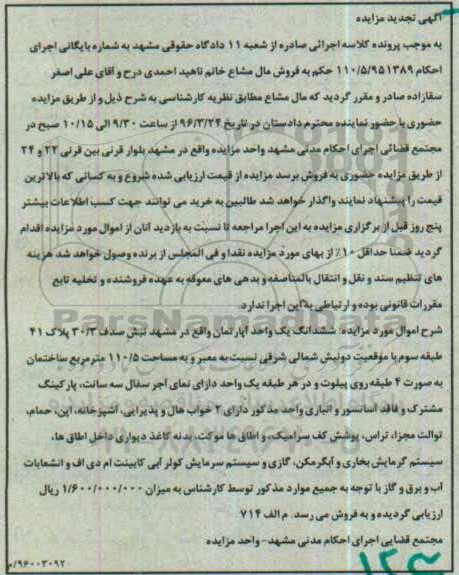 آگهی تجدید مزایده
به موجب پرونده کلاسه اجرائی صادره از شعبه ۱۱ دادگاه حقوقی مشهد به شماره بایگانی اجرای
احکام ۱۱۰/۵/۹۵۱۳۸۹ حکم به فروش مال مشاع خانم ناهید احمدی درح و آقای علی اصغر
سقازاده صادر و مقرر گردید که مال مشاع مطابق نظریه کارشناسی به شرح ذیل و از طریق مزایده
حضوری با حضور نماینده محترم دادستان در تاریخ ۹۶/۳/۲۴ از ساعت ۹/۳۰ الی ۱۰/۱۵ صبح در
مجتمع قضائی اجرای احکام مدنی مشهد واحد مزایده واقع در مشهد بلوار قرنی بین قرنی ۲۲ و ۲۴
از طریق مزایده حضوری به فروش برسد مزایده از قیمت ارزیابی شده شروع و به کسانی که بالاترین
قیمت را پیشنهاد نمایند واگذار خواهد شد طالبین به خرید می توانند جهت کسب اطلاعات بیشتر
پنج روز قبل از برگزاری مزایده به این اجرا مراجعه تا نسبت به بازدید آنان از اموال مورد مزایده اقدام
گردید ضمنا حداقل ۱۰٪ از بهای مورد مزایده نقدا و فی المجلس از برنده وصول خواهد شد هزینه
های تنظیم سند و نقل و انتقال بالمناصفه و بدهی های معوقه به عهده فروشنده و تخلیه تابع
مقررات قانونی بوده و ارتباطی به این اجرا ندارد.
شرح اموال مورد مزایده: ششدانگ یک واحد آپارتمان واقع در مشهد نبش صدف ۳۰/۳ پلاک ۴۱
طبقه سوم با موقعیت دونبش شمالی شرقی نسبت به معبر و به مساحت ۱۱۰/۵ مترمربع ساختمان
به صورت ۴ طبقه روی پیلوت و در هر طبقه یک واحد دارای نمای آجر سفال سه سانت، پارکینگ
مشترک و فاقد آسانسور و انباری واحد مذکور دارای ۲ خواب هال و پذیرایی، آشپزخانه، این، حمام،
توالت مجزا، تراس، پوشش کف سرامیک، و اطاق ها موکت، بدنه کاغذ دیواری داخل اطاق ها،
سیستم گرمایش بخاری و آبگرمکن، گازی و سیستم سرمایش کولر آبی کابینت ام دی اف و انشعابات
آب و برق و گاز با توجه به جمیع موارد مذکور توسط کارشناس به میزان ۱/۶۰۰/۰۰۰/۰۰۰ ریال
ارزیابی گردیده و به فروش می رسد. م الف ۷۱۴
مجتمع قضایی اجرای احکام مدنی مشهد- واحد مزایده
۹۶۰۰۳۰۹۲/م
ParsNamadData